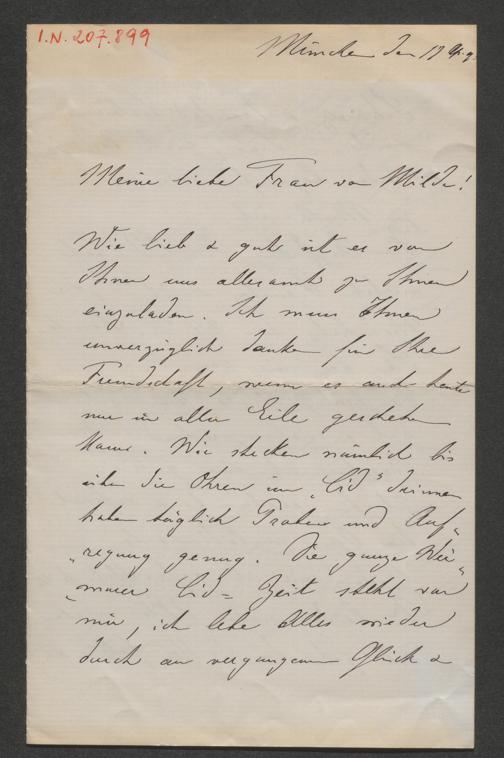 I.N. 207.899
München den 17
Meine liebe Frau von Milde!
Wie lieb & gut ist es von
Ihnen uns allesamt zu Ihnen
einzuladen. Ich muss Ihnen
unverzüglich danken für Ihre
Freundschaft, wenn es auch heute
nur in aller Eile geschehen
kann. Wir stecken nämlich bis
über die Ohren im „Cid“ drinnen
haben täglich Proben und Auf-
regung genug. Die ganze Wei-
marer Cid-Zeit steht vor
mir, ich lebe Alles wieder
durch an vergangenem Glück &